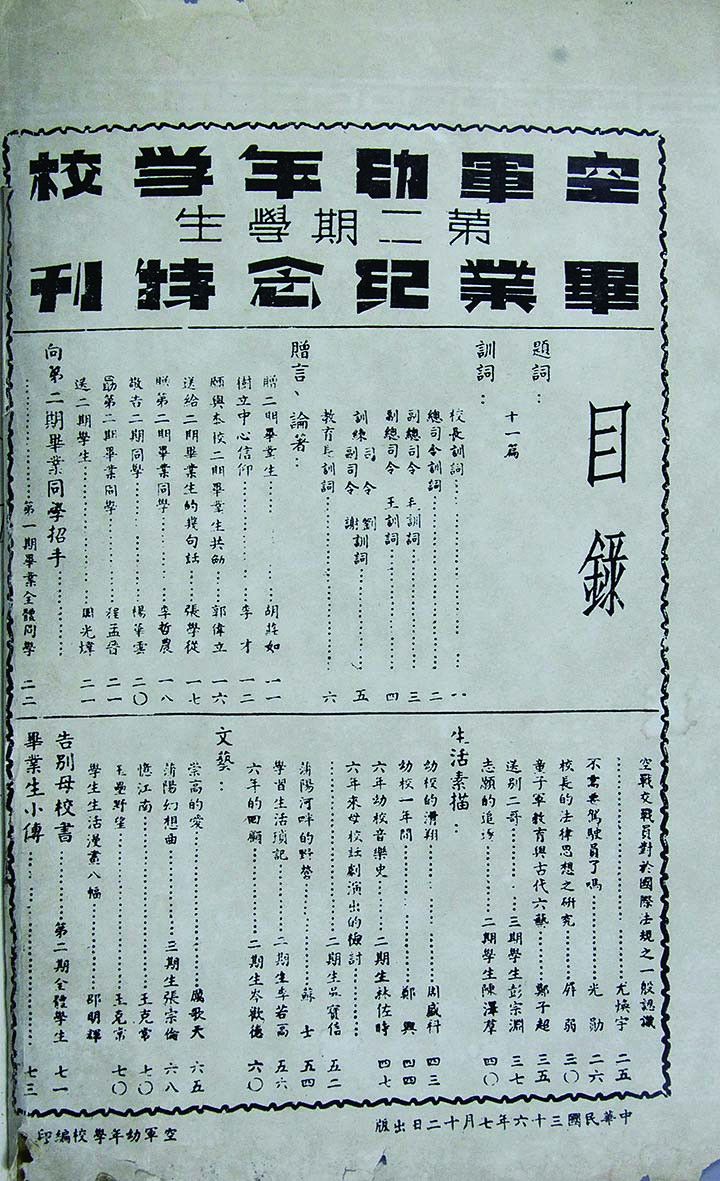 空軍幼年学校
第二期學生
畢業紀念特刊
目錄
題詞：
十一篇
訓詞：
校長訓詞……一
總司令訓詞……二
副總司令 毛訓詞……三
副總司令 王訓詞……四
訓練 司令 劉 副司令 謝 訓詞……五
教育長訓詞……六
贈言、論著：
贈二期畢業生……胡莊如 一一
樹立中心信仰……李才 一二
願與本校二期畢業生共勉……郭偉立 一六
送給二期畢業生的幾句話……張學從 一七
贈第二期畢業同學……李哲農 一八
敬告二期同學……楊華雲 二〇
勗第二期畢業同學……程孟晉 二一
送二期學生……周光煒 二一
向第二期畢業同學招手……
……第一期畢業全體同學 二二
空戰交戰員對於國際法規之一般認識
……尤煥宇 二五
不需要駕駛員了嗎……光勛 二六
校長的法律思想之研究……弱 三〇
童子軍教育與古代六藝……鄭子超 三五
送别二哥……三期學生彭宗淵 三七
志願的追逐……二期學生陳澤羣 四〇
生活素描：
幼校的滑翔……周盛科 四三
幼校一年間……鄭興 四四
六年幼校音樂史……二期生林佐時 四七
六年來母校話劇演出的檢討……
……二期生吳寶信 五二
蒲陽河畔的野營……蘇士 五四
學習生活瑣記……二期生李若高 五六
六年的回顧……二期生岑歡德 六〇
文藝：
崇高的愛……厲歌天 六五
蒲陽幻想曲……三期生張宗倫 六八
憶江南……王克常 七〇
玉壘野望……王克京 七〇
學生生活漫畫八幅……邵明輝
告別母校書……第二期全體學生 七一
畢業生小傳……七三
中華民國三十六年七月十二日出版
空軍幼年學校編印